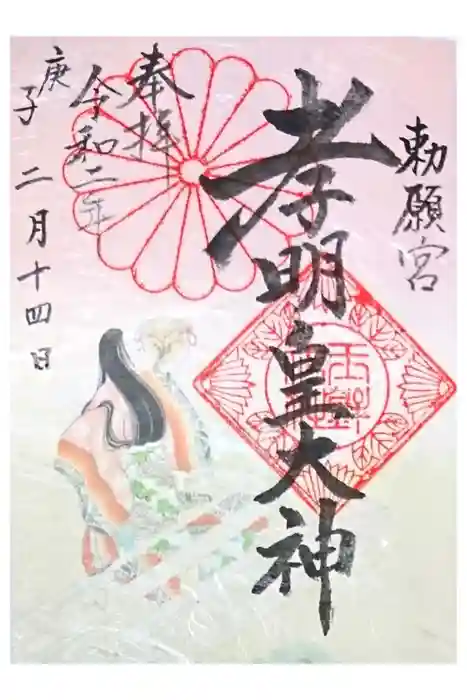 勅願宮
孝明皇大神
奉拝
令和二年
庚子 二月十四日